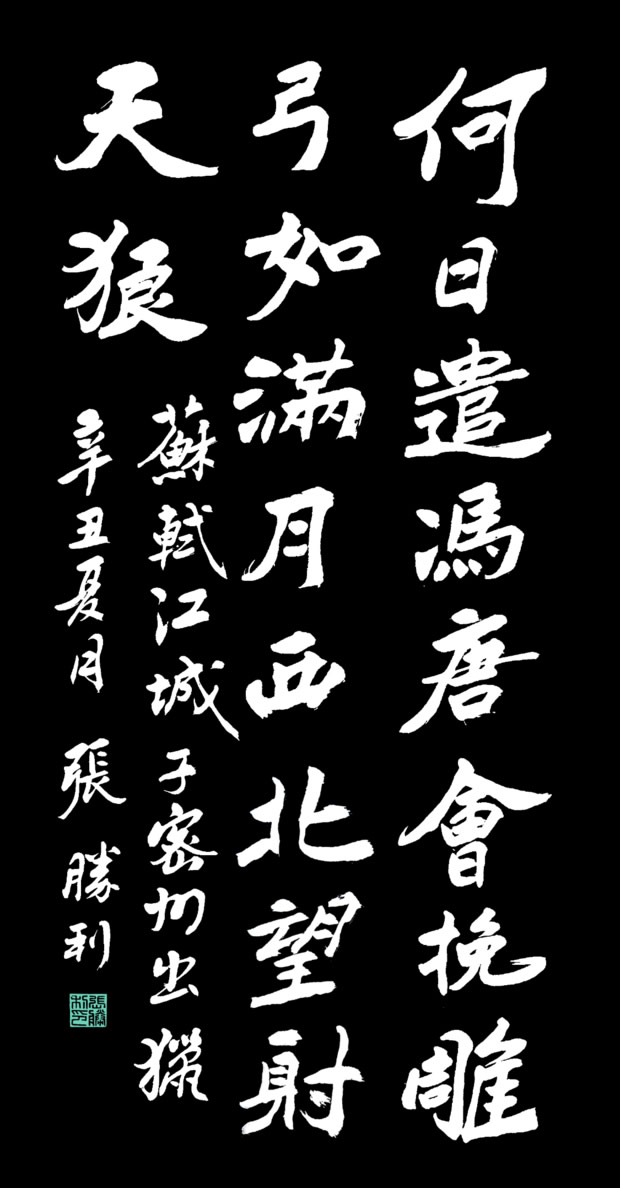 何日遣馮唐會挽雕
弓如滿月西北望射
天狼
蘇軾江城子密州出獵
辛丑夏月 張勝利
張勝利印